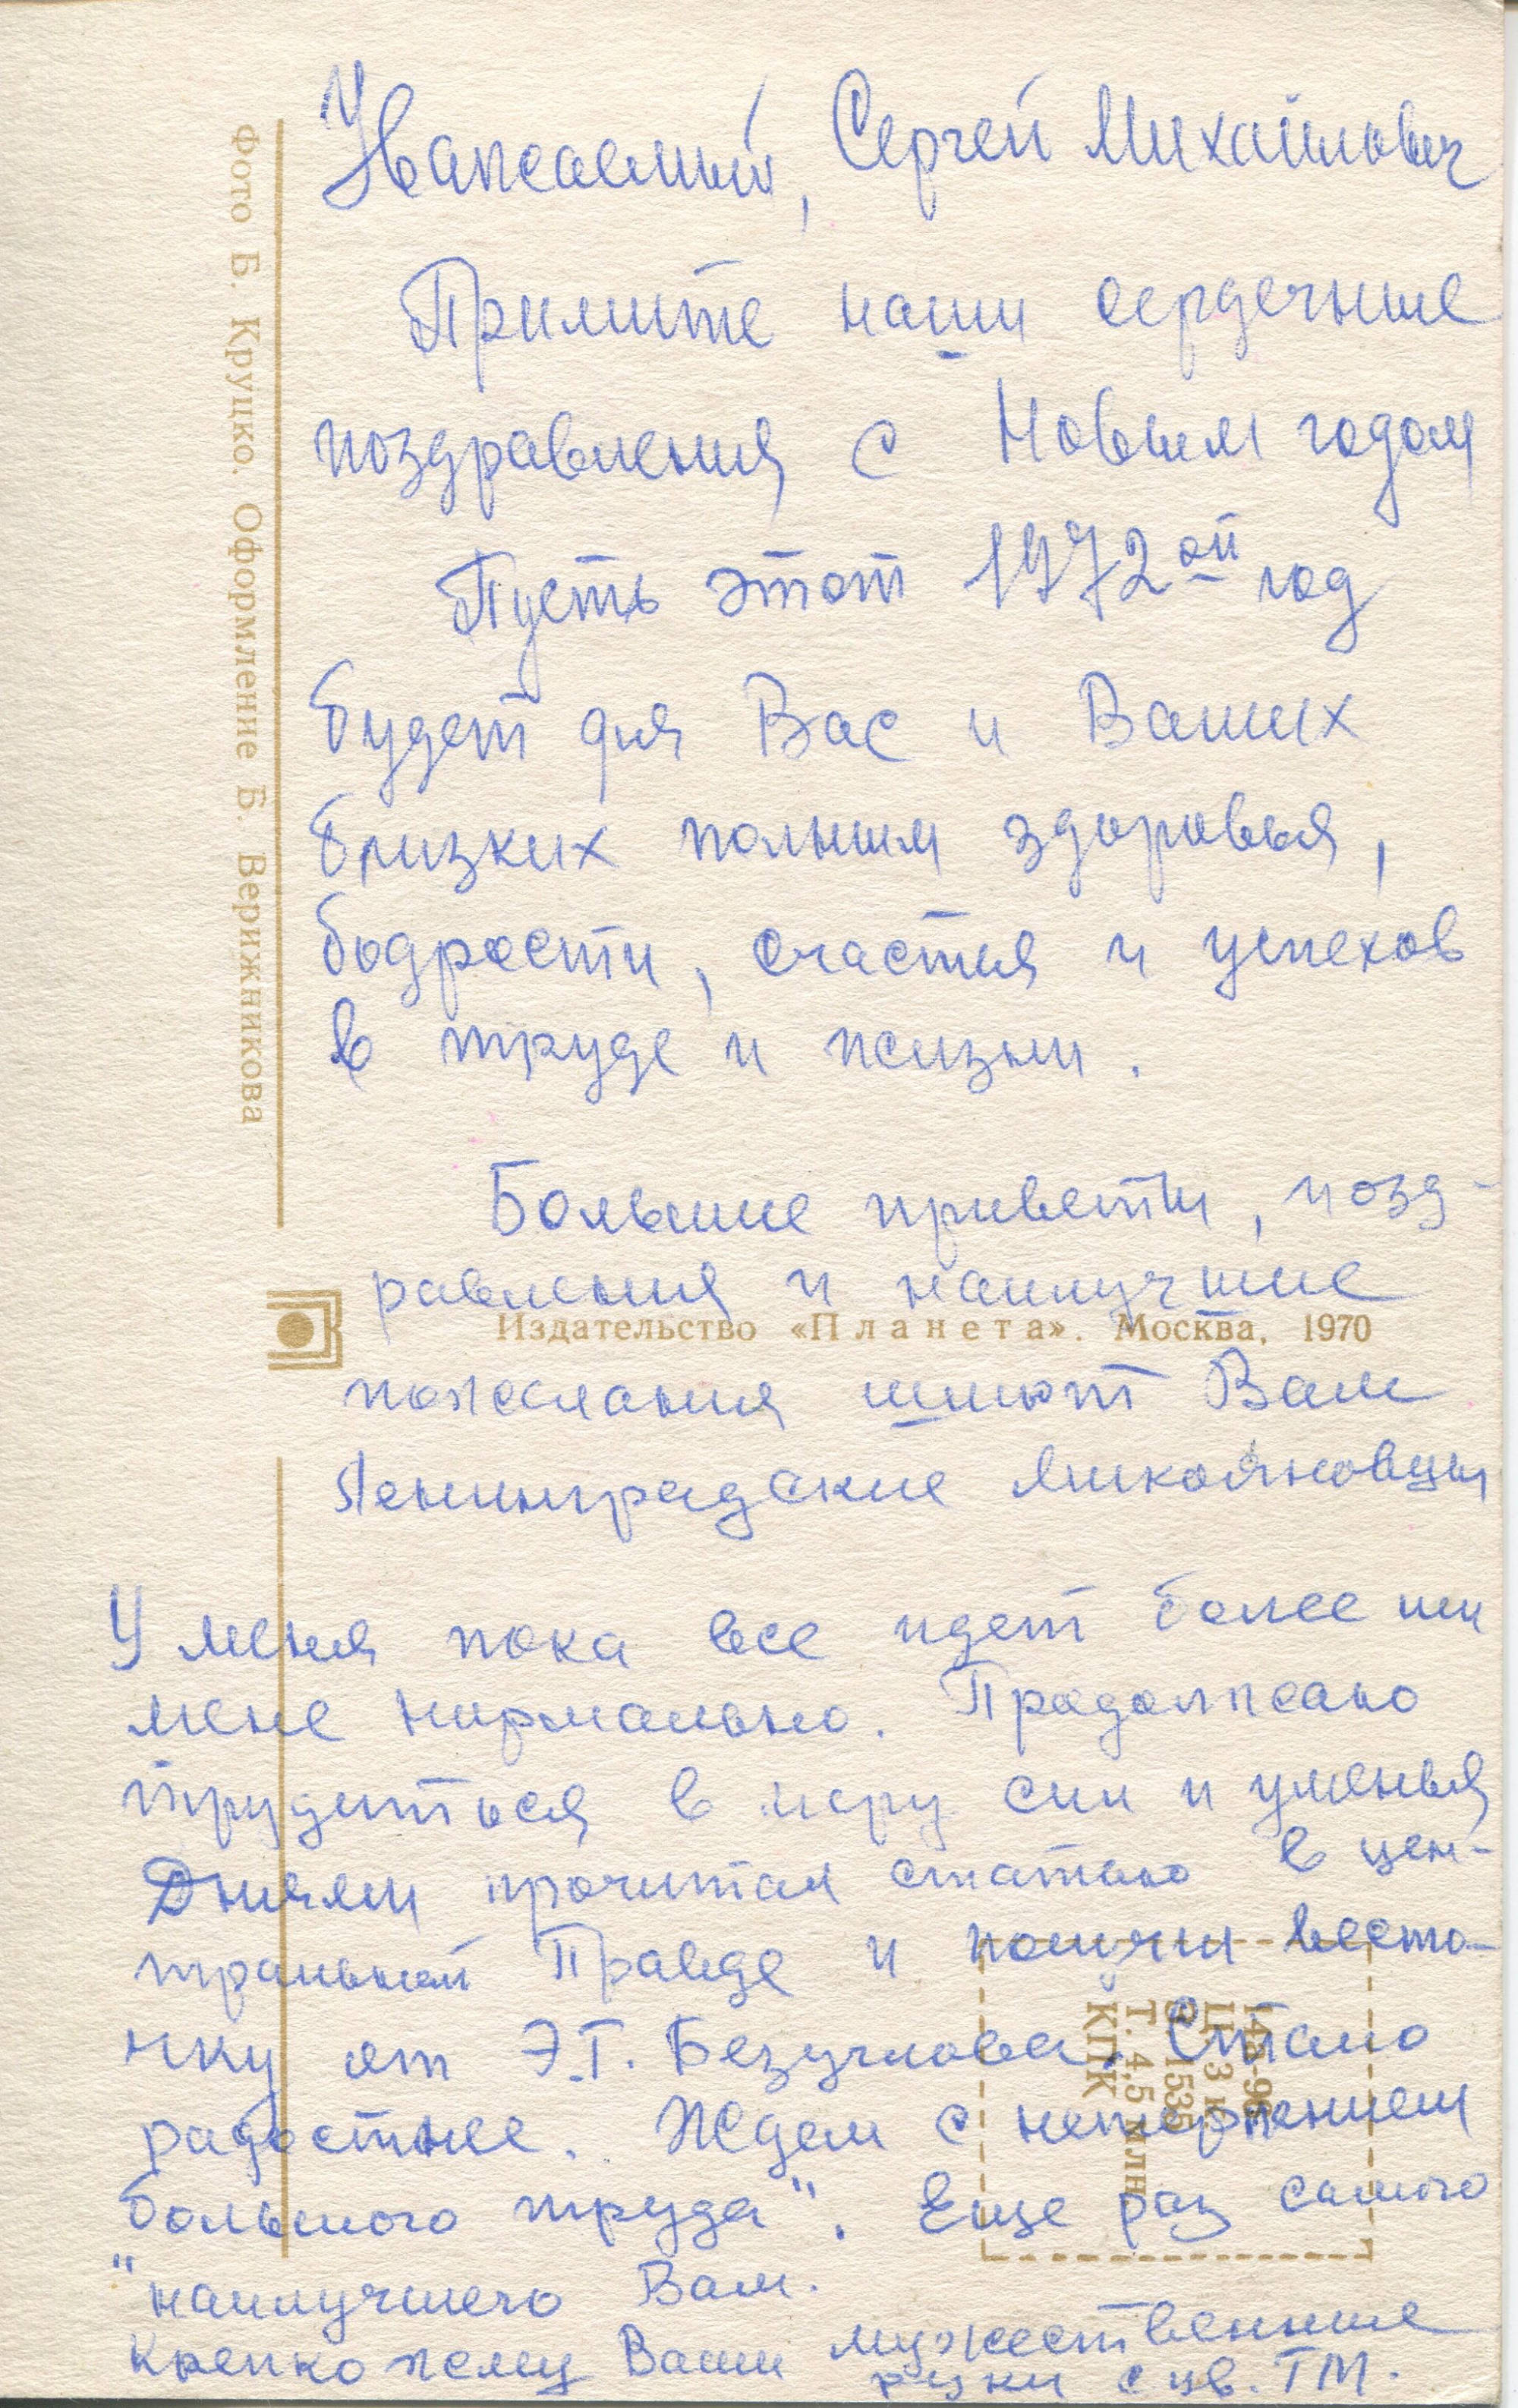 Уважаемый, Сергей Михайлович
Примите наши сердечные
поздравления с Новым годом
Пусть этот 1972ой год
будет для Вас и Ваших
близких полным здоровья,
бодрости, счастья и успехов
в труде и жизни.
Большие приветы, позд-
равления и наилучшие
пожелания шлют Вам
Ленинградские Микояновцы
У меня пока все идет более или
мене нормально. Продолжаю
трудиться в меру сил и уменья
Днями прочитал статью в цен-
тральной Правде и получил весто-
чку от Э.Т. Безучлова. Стало
радостнее. Ждем с нетерпением
большого труда". Еще раз самого
"наилучшего Вам.
Крепко жму Ваши мужественные
руки с ув. ТМ.
Фото Б. Круцко. Оформление Б. Верижникова
Издательство «Планета». Москва, 1970
Ц. 3 к.
1535
Т. 4,5 млн.
КПК